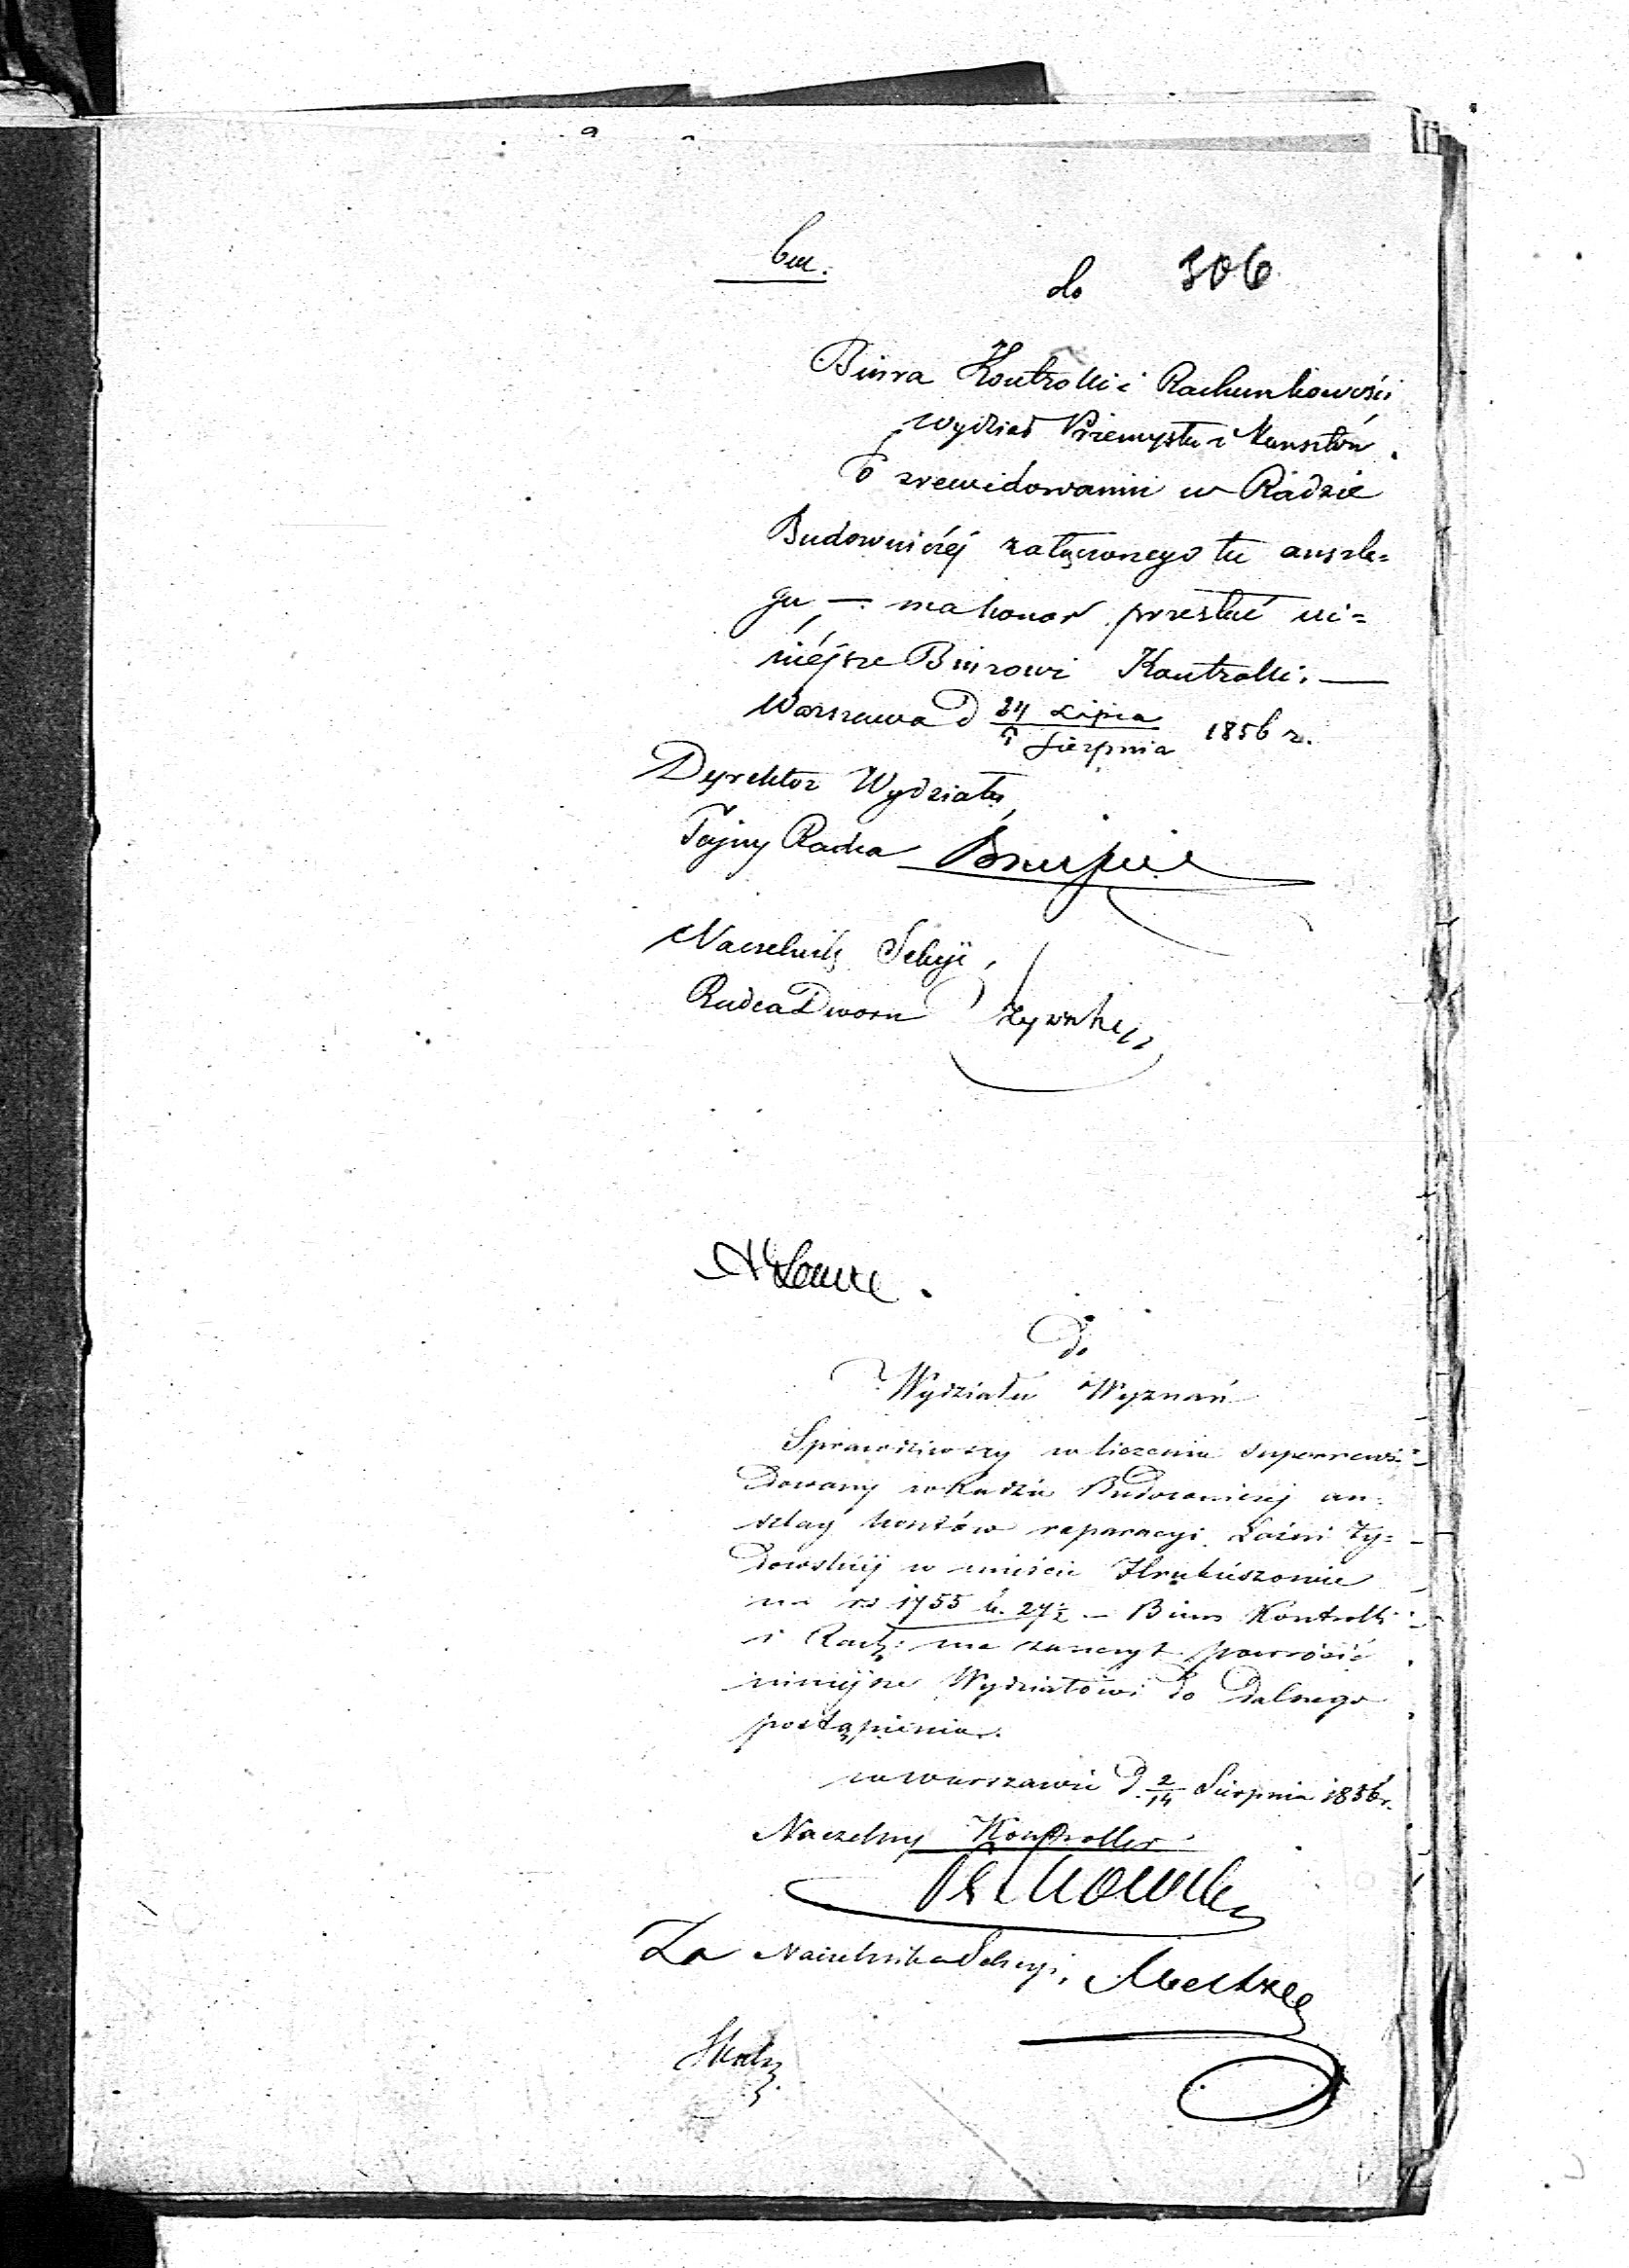 do 306
Biura Kontrolli i Rachunkowości
Wydział Przemysłu i Kunsztów
Po zrewidowaniu w Radzie
Budowniczej załączonego tu anszla=
gu — ma honor przesłać ni=
niéjsze Biurowi Kontrolli. —
Warszawa d Lipca
Sierpnia 1856 r.
Dyrektor Wydziału,
Tajny Radca
Naczelnik Sekcji,
Radca Dworu
Do
Wydziału Wyznań
Sprawdziwszy w liczeniu superrewi=
dowany w Radzie Budowniczej an=
szlag kosztów reparacyi Łaźni Ży=
dowskiej w mieście Hrubieszowie
na rs 1755 k. 27½ — Biuro Kontrolli
i Rach: ma zaszczyt powrócić
niniejsze Wydziałowi do dalszego
postąpienia.
w Warszawie d. 2/14 Sierpnia 1856 r.
Naczelny Kontroller
Za Naczelnika Sekcyi,